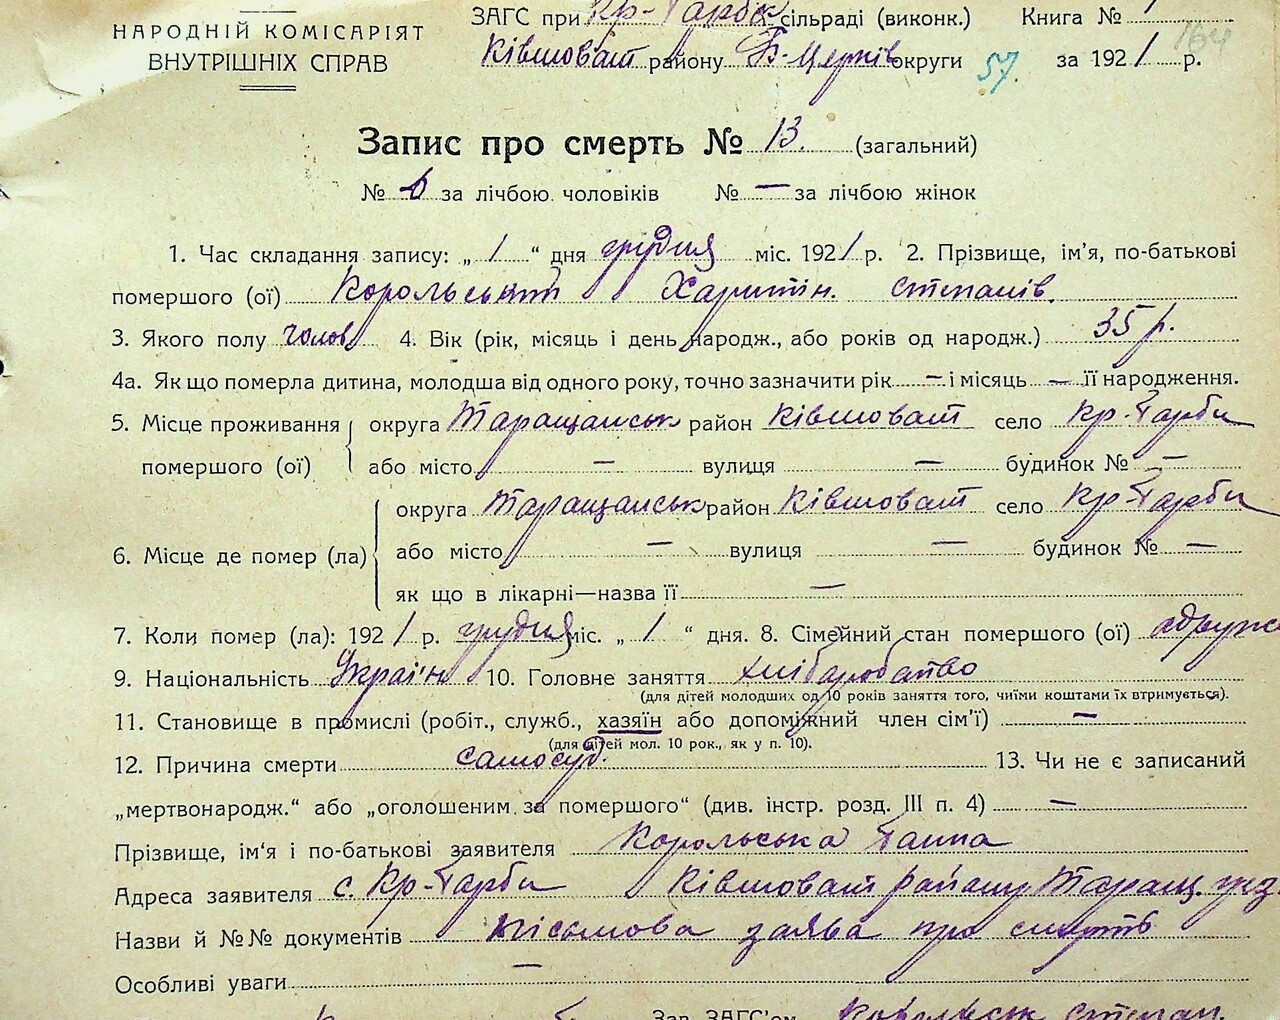 НАРОДНІЙ КОМІСАРІЯТ
ВНУТРІШНІХ СПРАВ
ЗАГС при Кр-Гарбк. сільраді (виконк.) Книга №
Ківшоват району Б-Церків округи 57. за 1921 р. 164
Запис про смерть № 13. (загальний)
№ 6 за лічбою чоловіків № — за лічбою жінок
1. Час складання запису: „ 1 “ дня грудня міс. 1921 р. 2. Прізвище, ім'я, по-батькові
помершого (ої) Корольський Харитін. Степанів.
3. Якого полу чолов 4. Вік (рік, місяць і день народж., або років од народж.) 35 р.
4а. Як що померла дитина, молодша від одного року, точно зазначити рік — і місяць — її народження.
5. Місце проживання округа Таращанськ район Ківшоват село Кр-Гарби
помершого (ої) або місто — вулиця — будинок № —
округа Таращанськ район Ківшоват село Кр-Гарби
6. Місце де помер (ла) або місто — вулиця — будинок № —
як що в лікарні—назва її —
7. Коли помер (ла): 1921 р. грудня міс. „ 1 “ дня. 8. Сімейний стан помершого (ої) одруже
9. Національність Україн 10. Головне заняття хліборобство
(для дітей молодших од 10 років заняття того, чиїми коштами їх втримується).
11. Становище в промислі (робіт., служб., хазяїн або допоміжний член сім'ї) —
(для дітей мол. 10 рок., як у п. 10).
12. Причина смерти самосуд. 13. Чи не є записаний
„мертвонародж.“ або „оголошеним за помершого“ (див. інстр. розд. III п. 4) —
Прізвище, ім'я і по-батькові заявителя Корольська Ганна
Адреса заявителя с. Кр-Гарби Ківшоват району Таращ.
Назви й №№ документів пісьмова заява про смерть
Особливі уваги —
Зав. ЗАГС'ом Корольськ Степан.